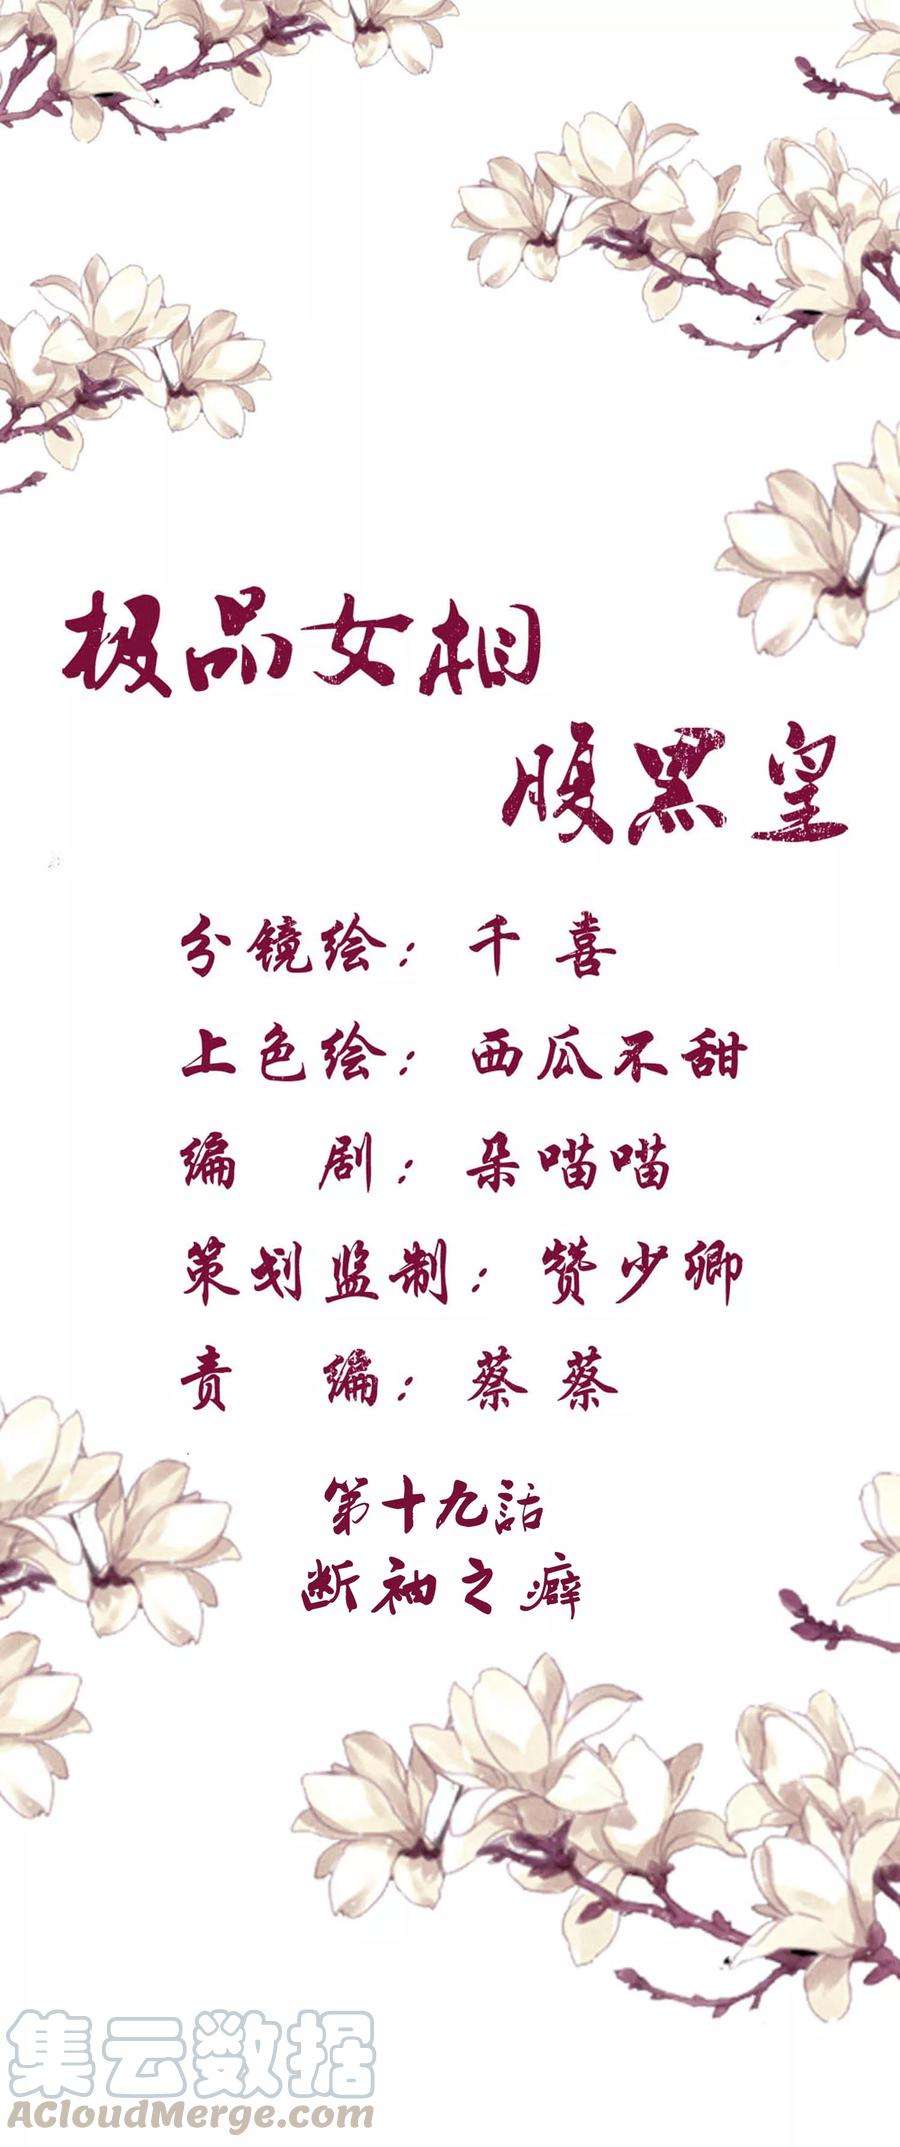 极品女相
腹黑皇
分镜绘：千喜
上色绘：西瓜不甜
编 剧：朵喵喵
策划监制：赞少卿
责 编：蔡蔡
第十九話
断袖之癖
集云数据
ACloudMerge.com